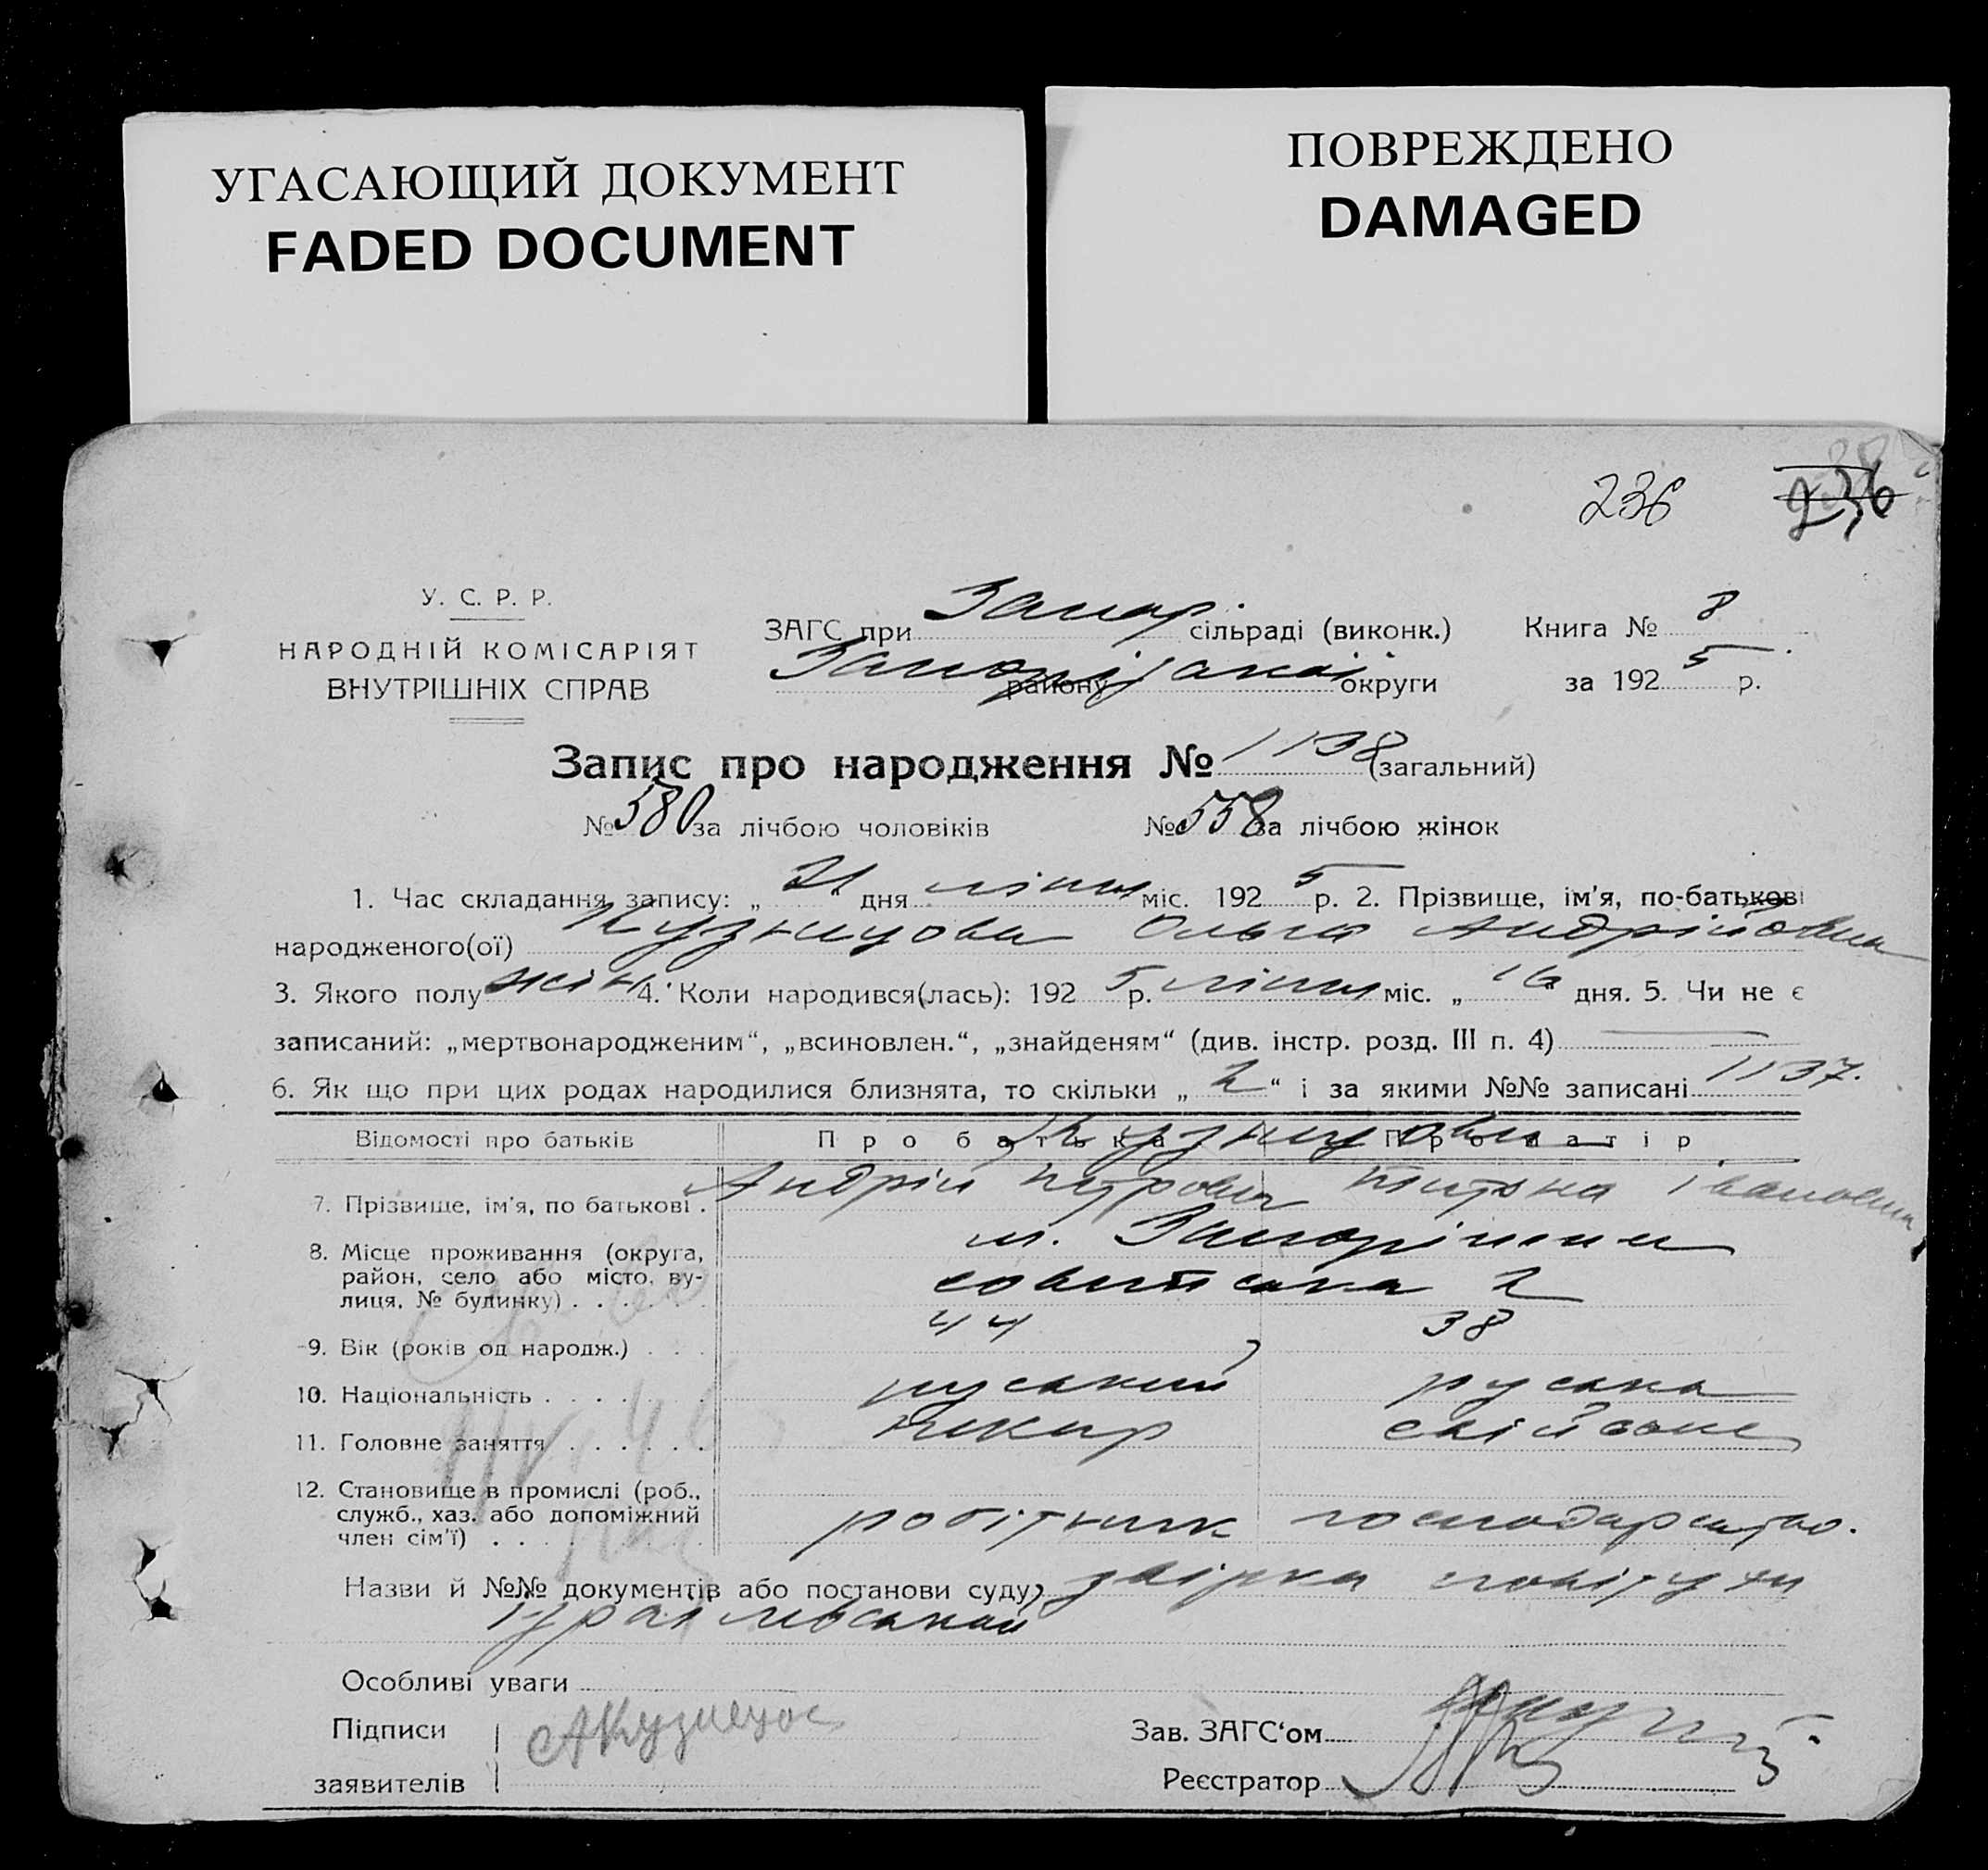 УГАСАЮЩИЙ ДОКУМЕНТ
FADED DOCUMENT
ПОВРЕЖДЕНО
DAMAGED
236 236
У. С. Р. Р.
НАРОДНІЙ КОМІСАРІЯТ
ВНУТРІШНІХ СПРАВ
ЗАГС при Запор. сільраді (виконк.)
району округи
Книга № 8
за 1925 р.
Запис про народження № 1138 (загальний)
№ 580 за лічбою чоловіків № 558 за лічбою жінок
1. Час складання запису: „21“ дня липня міс. 1925 р. 2. Прізвище, ім'я, по-батькові
народженого(ої) Кузнецова Ольга Андріївна
3. Якого полу жін 4. Коли народився(лась): 1925 р. липня міс. „16“ дня. 5. Чи не є
записаний: „мертвонародженим“, „всиновлен.“, „знайденям“ (див. інстр. розд. III п. 4)
6. Як що при цих родах народилися близнята, то скільки „2“ і за якими №№ записані 1137.
Відомості про батьків Про батька Про матір
Кузнецови
7. Прізвище, ім'я, по батькові . Андрій Петрович Тетяна Івановна
8. Місце проживання (округа, район, село або місто, вулиця, № будинку) . . . . . . м. Запоріжжя
совітська 2
9. Вік (років од народж.) . . . 44 38
10. Національність . . . . . . . руський руська
11. Головне заняття . . . . . . пекар хатнє
12. Становище в промислі (роб., служб., хаз. або допоміжний член сім'ї) . . . . . . . . робітник господарство.
Назви й №№ документів або постанови суду
Особливі уваги
Підписи
заявителів
АКузнецов
Зав. ЗАГС'ом
Реєстратор